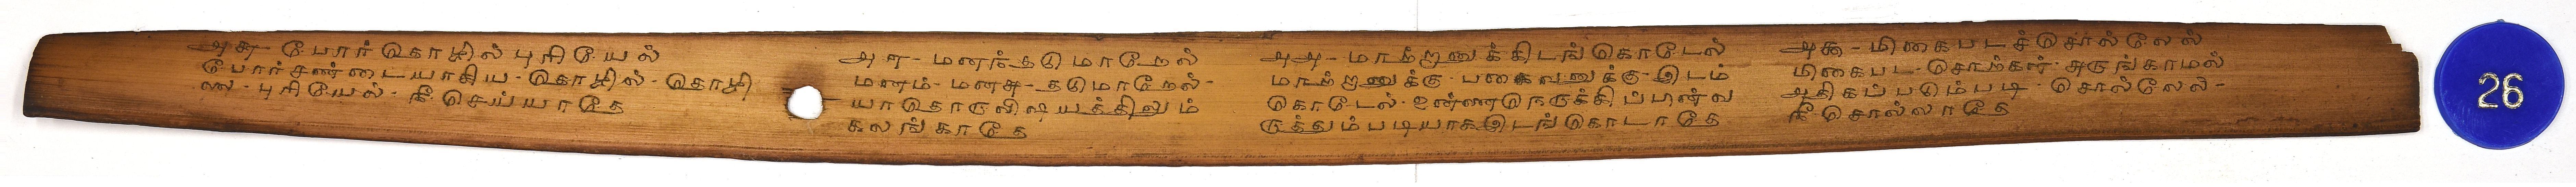 ௮௬- போர் தொழில் புரியேல்
போர்சண்டையாகிய- தொழில்- தொழி
ல்- புரியேல்- நீ செய்யாதே
௮௭- மனந்தடுமாறேல்
மனம்- மனசு- தடுமாறேல்-
யாதொருவிஷயத்திலும்
கலங்காதே
௮௮- மாற்றனுக்கிடங்கொடேல்
மாற்றனுக்கு- பகைவனுக்கு- இடம்
கொடேல்- உன்னநெருக்கிப்பின்வ
ருத்தும்படியாகஇடங்கொடாதே
௮௯- மிகைபடச்சொல்லேல்
மிகைபட- சொற்கள்- சுருங்காமல்
அதிகப்படும்படி- சொல்லேல்-
நீ சொல்லாதே
26